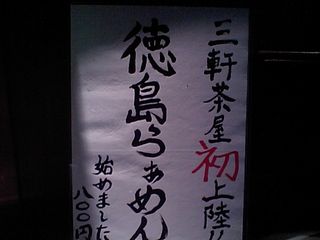 三軒茶屋初上陸!!
徳島らぁめん
始めました
八〇〇円